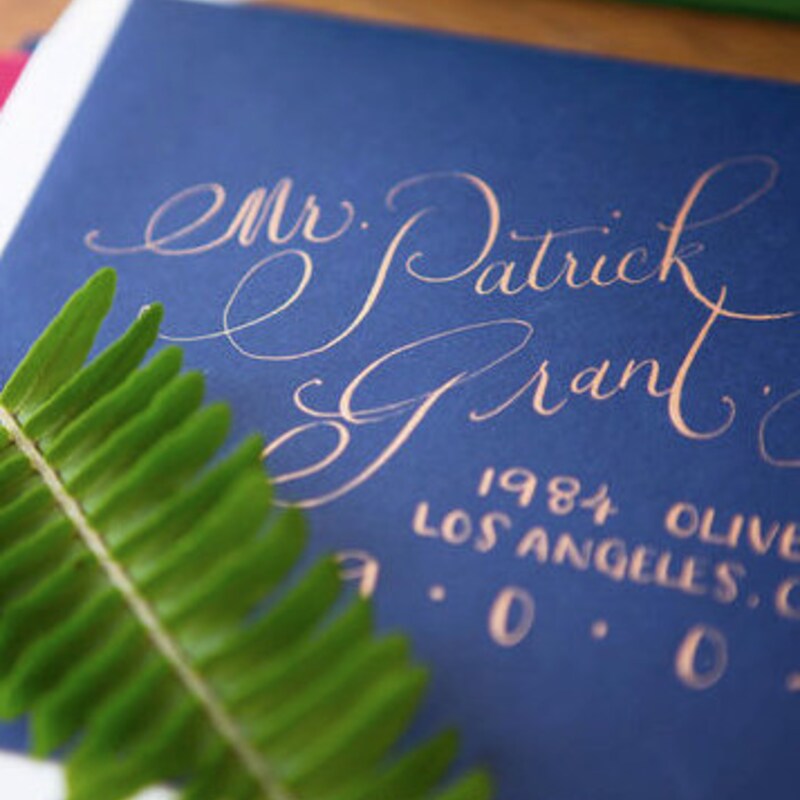 Mr. Patrick
Grant
1984 OLIVE
LOS ANGELES, C
9 · 0 · 0 ·